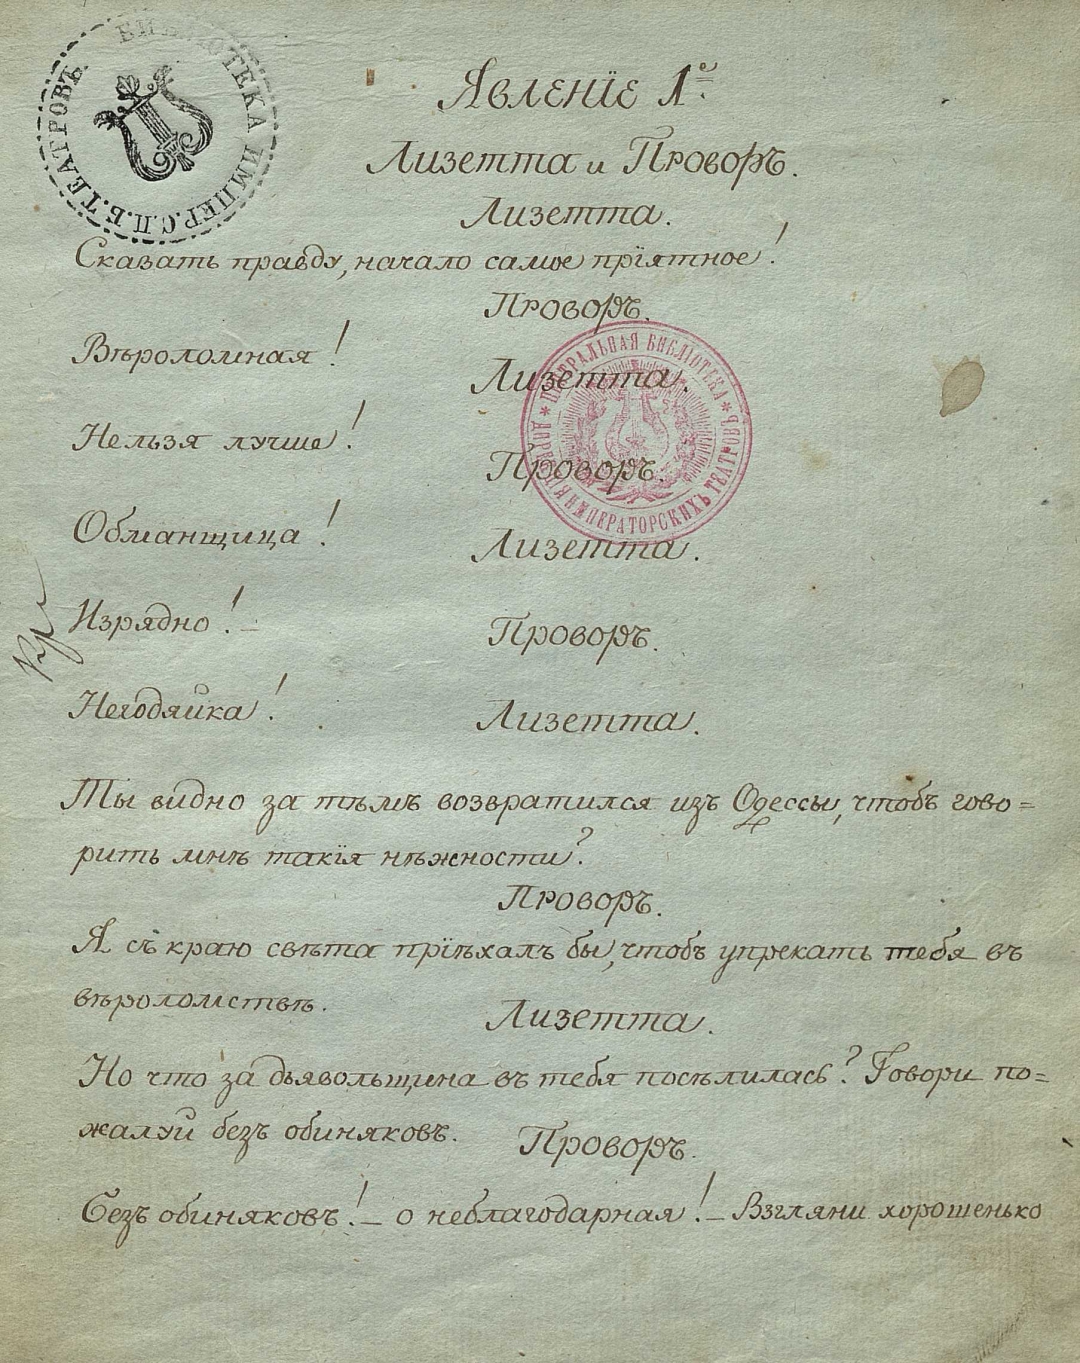 БИБЛIОТЕКА ИМПЕР. С.П.Б. ТЕАТРОВЪ
Явленiе 1е.
Лизетта и Проворъ.
Лизетта.
Сказать правду, начало самое прiятное!
Проворъ.
Вѣроломная!
Лизетта.
ЦЕНТРАЛЬНАЯ БИБЛIОТЕКА
ДИРЕКЦIИ ИМПЕРАТОРСКИХЪ ТЕАТРОВЪ
Нельзя лучше!
Проворъ.
Обманщица!
Лизетта.
Изрядно! –
Проворъ.
Негодяйка!
Лизетта.
Ты видно за тѣмъ возвратился изъ Одессы, чтобъ гово=
рить мнѣ такiя нѣжности?
Проворъ.
Я съ краю свѣта прiѣхалъ бы, чтобъ упрекать тебя въ
вѣроломствѣ.
Лизетта.
Но что за дьявольщина въ тебя посѣлилась? Говори по=
жалуй безъ обиняковъ.
Проворъ.
Безъ обиняковъ! – о неблагодарная! – Взгляни хорошенько